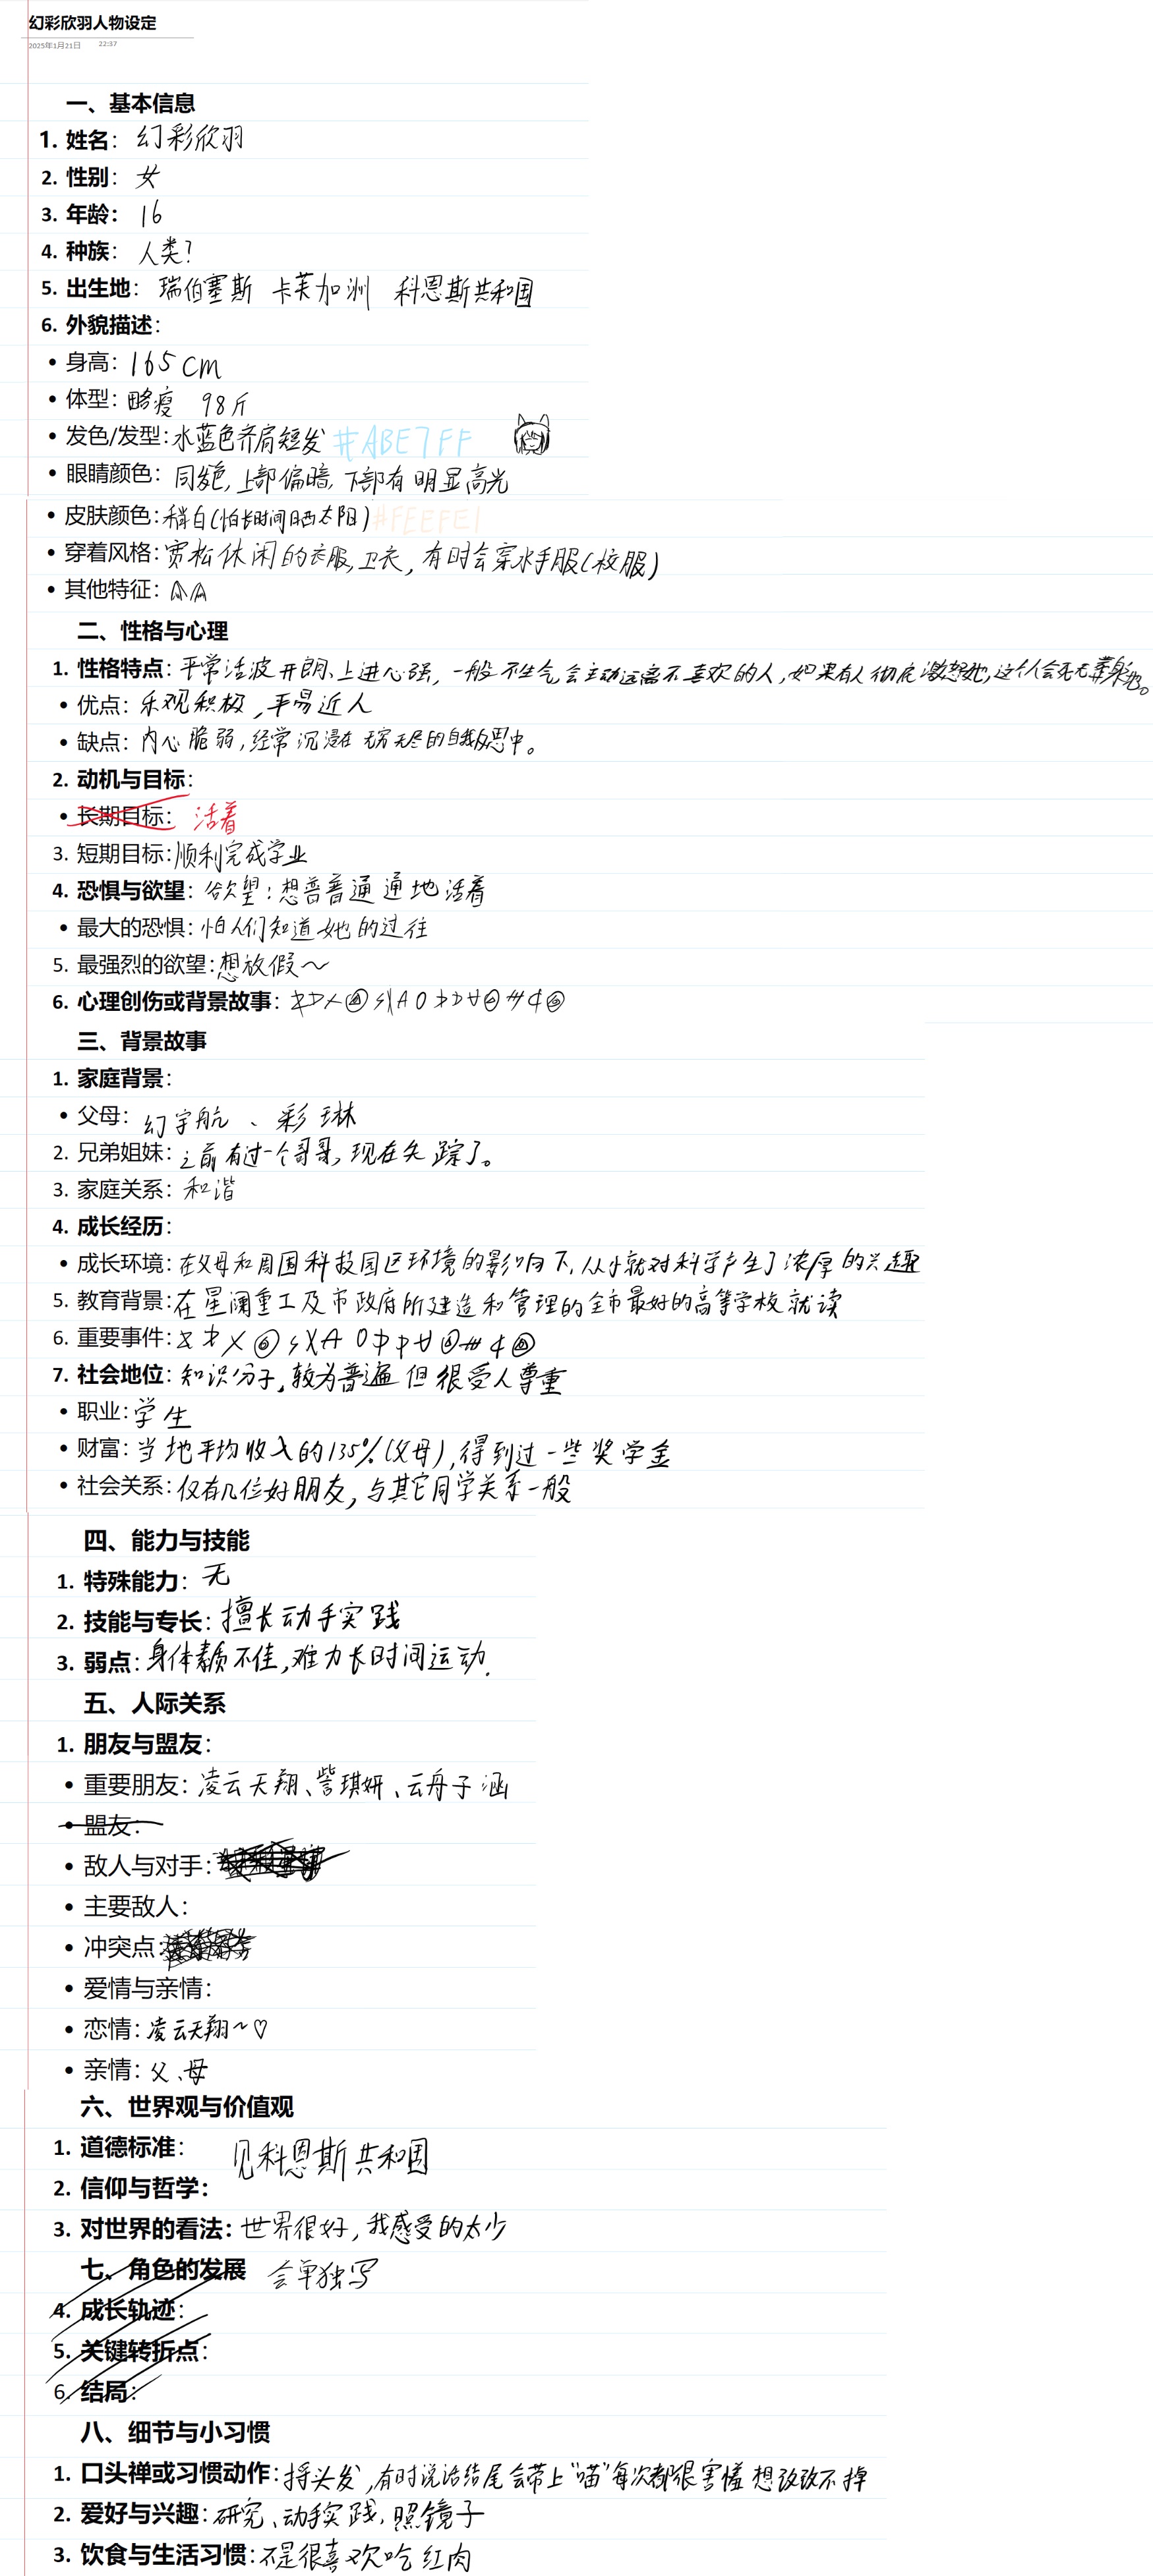 幻彩欣羽人物设定
2025年1月21日 22:37
一、基本信息
1. 姓名： 幻彩欣羽
2. 性别： 女
3. 年龄： 16
4. 种族： 人类?
5. 出生地： 瑞伯塞斯 卡芙加洲 科恩斯共和国
6. 外貌描述：
• 身高：165cm
• 体型：略瘦 98斤
• 发色/发型：水蓝色齐肩短发 #ABE7FF
• 眼睛颜色：同发色,上部偏暗,下部有明显高光
• 皮肤颜色：稍白(怕长时间晒太阳) #FEEFE1
• 穿着风格：宽松休闲的衣服,卫衣,有时会穿水手服(校服)
• 其他特征：
二、性格与心理
1. 性格特点：平常活波开朗、上进心强,一般不生气,会主动远离不喜欢的人,如果有人彻底激怒她,这个人会死无葬身之地。
• 优点：乐观积极,平易近人
• 缺点：内心脆弱,经常沉浸在无穷无尽的自我反思中。
2. 动机与目标：
• 长期目标： 活着
3. 短期目标：顺利完成学业
4. 恐惧与欲望：欲望：想普普通通地活着
• 最大的恐惧：怕人们知道她的过往
5. 最强烈的欲望：想放假～
6. 心理创伤或背景故事：
三、背景故事
1. 家庭背景：
• 父母：幻宇航、彩琳
2. 兄弟姐妹：之前有过一个哥哥,现在失踪了。
3. 家庭关系：和谐
4. 成长经历：
• 成长环境：在父母和周围科技园区环境的影响下,从小就对科学产生了浓厚的兴趣
5. 教育背景：在星阑重工及市政府所建造和管理的全市最好的高等学校就读
6. 重要事件：
7. 社会地位：知识分子,较为普遍但很受人尊重
• 职业：学生
• 财富：当地平均收入的135%(父母),得到过一些奖学金
• 社会关系：仅有几位好朋友,与其它同学关系一般
四、能力与技能
1. 特殊能力：无
2. 技能与专长：擅长动手实践
3. 弱点：身体素质不佳,难力长时间运动.
五、人际关系
1. 朋友与盟友：
• 重要朋友：凌云天翔、訾琪妍、云舟子涵
• 盟友：
• 敌人与对手：
• 主要敌人：
• 冲突点：
• 爱情与亲情：
• 恋情：凌云天翔~♡
• 亲情：父、母
六、世界观与价值观
1. 道德标准： 见科恩斯共和国
2. 信仰与哲学：
3. 对世界的看法：世界很好,我感受的太少
七、角色的发展 会单独写
4. 成长轨迹：
5. 关键转折点：
6. 结局：
八、细节与小习惯
1. 口头禅或习惯动作：捋头发,有时说话结尾会带上“喵”每次都很害怕想改改不掉
2. 爱好与兴趣：研究、动手实践,照镜子
3. 饮食与生活习惯：不是很喜欢吃红肉